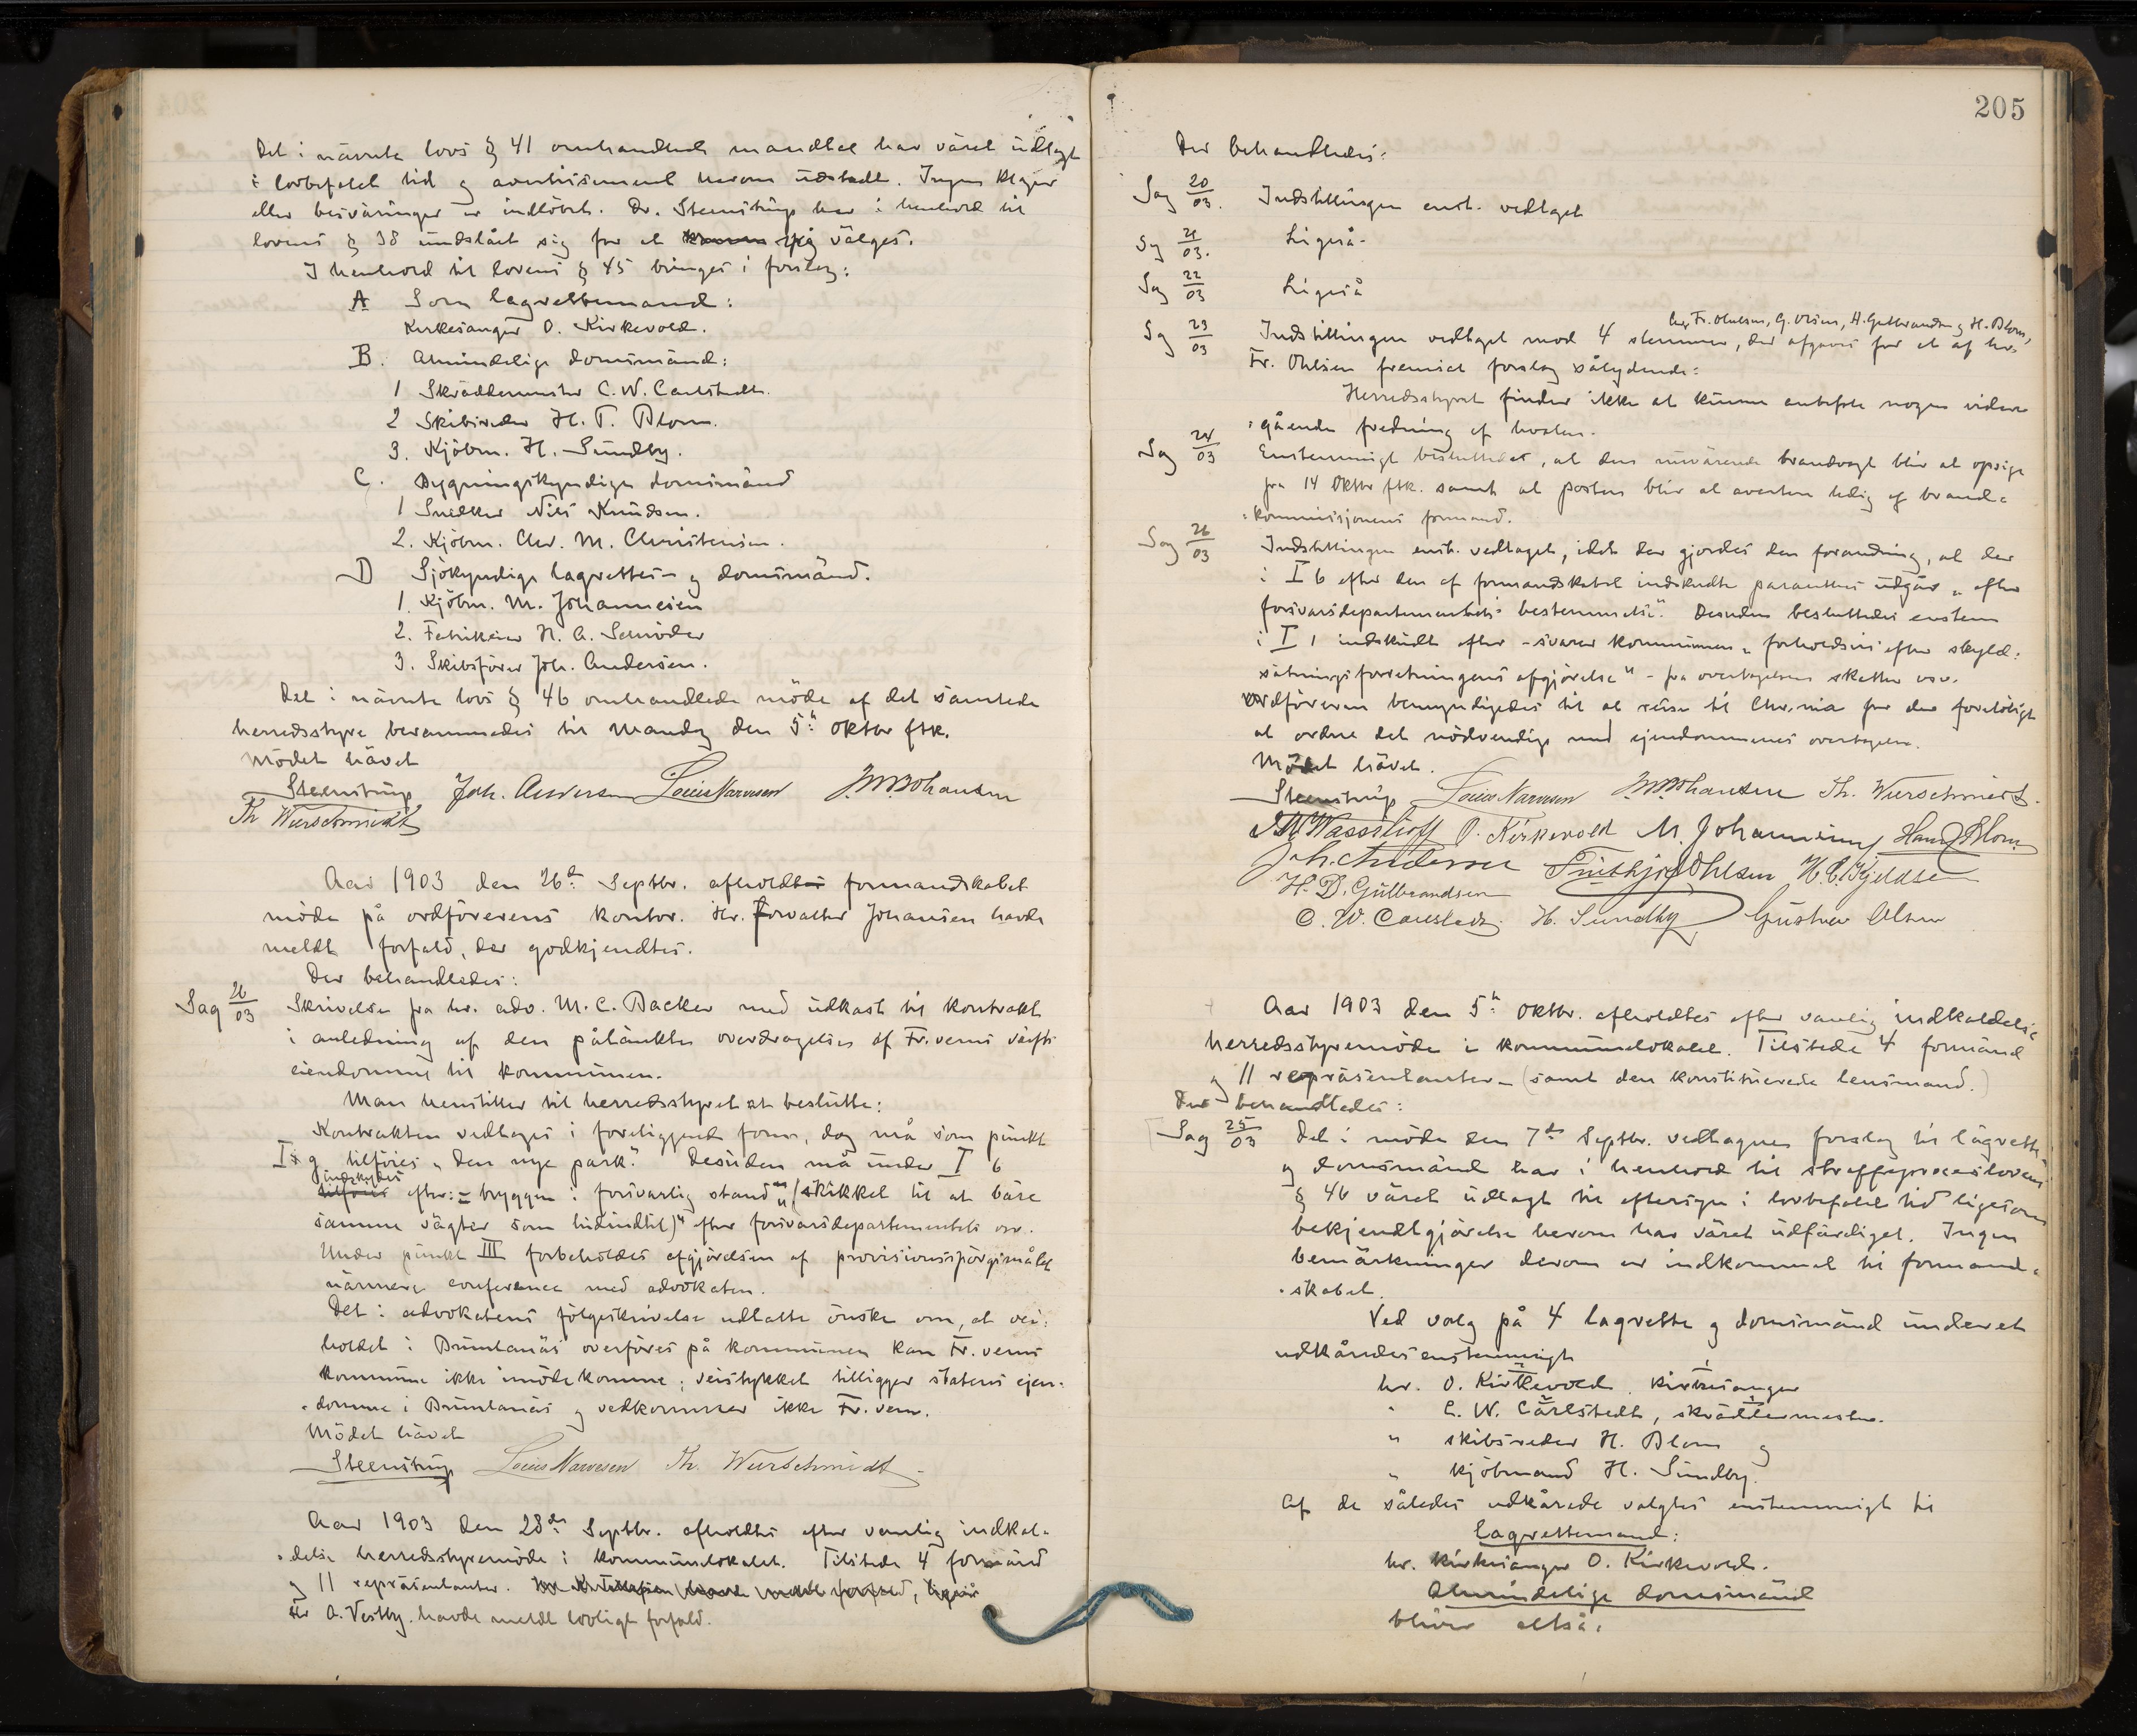 Det i nävnte lovs § 41 omhandlede mandtal har väret udlagt
i lovbefalet tid og avertissement herom udstedt. Ingen klager
eller besväringer er indlöbet. Hr. Steenstrup har i henhold til
lovens § 38 undslået sig for at välges.
I henhold til lovens § 45 bringes i forslag:
A Som lagrettemand:
Kirkesanger O. Kirkevold.
B. Almindelige domsmänd:
1 Skräddermester C. W. Carlstedt.
2 Skibsreder H. T. Blom.
3. Kjöbm. H. Sundby.
C. Bygningskyndige domsmänd
1 Snedker Nils Knudsen.
2. Kjöbm. Chr. M. Christensen.
D Sjökyndige lagrettes- og domsmänd.
1. Kjöbm. M. Johannesen
2. Fabrikeier H. A. Schröder
3. Skibsförer Joh. Andersen.
Det i nävnte lovs § 46 omhandlede möde af det samlede
herredsstyre berammedes til Mandag den 5te Oktbr ftk.
Mödet hävet
Steenstrup Joh. Andersen Louis Narvesen J. M. Johansen
Th Wurschmidt
Aar 1903 den 26de Septbr. afholdt formandskabet
möde på ordförerens kontor. Hr. Forvalter Johansen havde
meldt forfald, der godkjendtes.
Der behandledes:
Sag 26/03 Skrivelse fra hr. adv. M. C. Backer med udkast til kontrakt
i anledning af den påtänkte overdragelse af Fr.verns värfts
eiendomme til kommunen.
Man henstiller til herredsstyret at beslutte:
Kontrakten vedtages i foreliggende form, dog må som punkt
I g tilföies "den nye park". Desuden må under I b
indskydes
tilföies efter: - bryggen i forsvarlig stand" "(skikket til at bäre
samme vägter som hidindtil)" efter forsvarsdepartementets osv.
Under punkt III forbeholdes afgjörelsen af provisionsspörgsmålet
närmere conference med advokaten.
Det i advokatens fölgeskrivelse udtalte önske om, at vei:
holdet i Brunlanäs overföres på kommunen kan Fr.verns
kommune ikke imödekomme; veistykket tilligger statens ejen-
-domme i Brunlanäs og vedkommer ikke Fr.vern.
Mödet hävet
Steenstrup Louis Narvesen Th. Wurschmidt
Aar 1903 den 28de Septbr. afholdtes efter vanlig indkal-
-delse herredsstyremöde i kommunelokalet. Tilstede 4 formänd
og 11 repräsentanter.
Hr A. Vestby havde meldt lovligt forfald.
205
Der behandledes:
Sag 20/03. Indstillingen enst. vedtaget
Sag 21/03. Ligeså-
Sag 22/03 Ligeså
hr. Fr. Ohlsen, G. Olsen, H. Gulbrandsen og H. Blom,
Sag 23/03 Indstillingen vedtaget mod 4 stemmer, der afgaves for et af hr.
Fr. Ohlsen fremsat forslag sålydende:
Herredsstyret finder ikke at kunne anbefale nogen videre
-gående fredning af
Sag 24/03 Enstemmigt besluttedes, at den nuvärende brandvagt blir at opsige
fra 14 Oktbr ftk. samt at posten blir at avertere ledig af brand-
-kommissjonens formand.
Sag 26/03 Indstillingen enst. vedtaget, idet der gjordes den forandring, at der
i I b efter den af formandskabet indskudte paranthes udgår "efter
forsvarsdepartementets bestemmelse". Desuden besluttedes enstem
i I 1 indskudt efter - svarer kommunen "forholdsvis efter skyld-
sätningsforretningens afgjörelse" - fra overtagelsen skatter osv.
Ordföreren bemyndigedes til at reise til Chr.nia for der foreløbigt
at ordne det nödvendige med ejendommenes overtagelse.
Mödet hävet.
Steenstrup Louis Narvesen J. M. Johansen Th. Wurschmidt.
O. Kirkevold M. Johannesen Hans Blom
Joh. Andersen Frithjof Ohlsen H. C. Kjeldsen
H. D. Gulbrandsen
C. W. Carlstedt. H. Sundby Gustav Olsen
Aar 1903 den 5te Oktbr. afholdtes efter vanlig indkaldelse
herredsstyremöde i kommunelokalet. Tilstede 4 formänd
og 11 repräsentanter - (samt den konstituerede lensmand.)
Der behandledes:
Sag 25/03 Det i möde den 7de Septbr. vedtagne forslag til lagrette
og domsmänd har i henhold til straffeproceslovens
§ 46 väret udlagt til eftersyn i lovbefalet tid ligesom
bekjendtgjörelse herom har väret udfärdiget. Ingen
bemärkninger derom er indkommet til formand-
-skabet.
Ved valg på 4 lagrette og domsmänd underet
udkåredes enstemmigt
hr. O. Kirkevold, kirkesanger
" C. W. Carlstedt, skräddermester.
" skibsreder H. Blom og
" kjöbmand H. Sundby.
Af de således udkårede valgtes enstemmigt til
lagrettemand:
hr. kirkesanger O. Kirkevold.
Almindelige domsmänd
bliver altså: